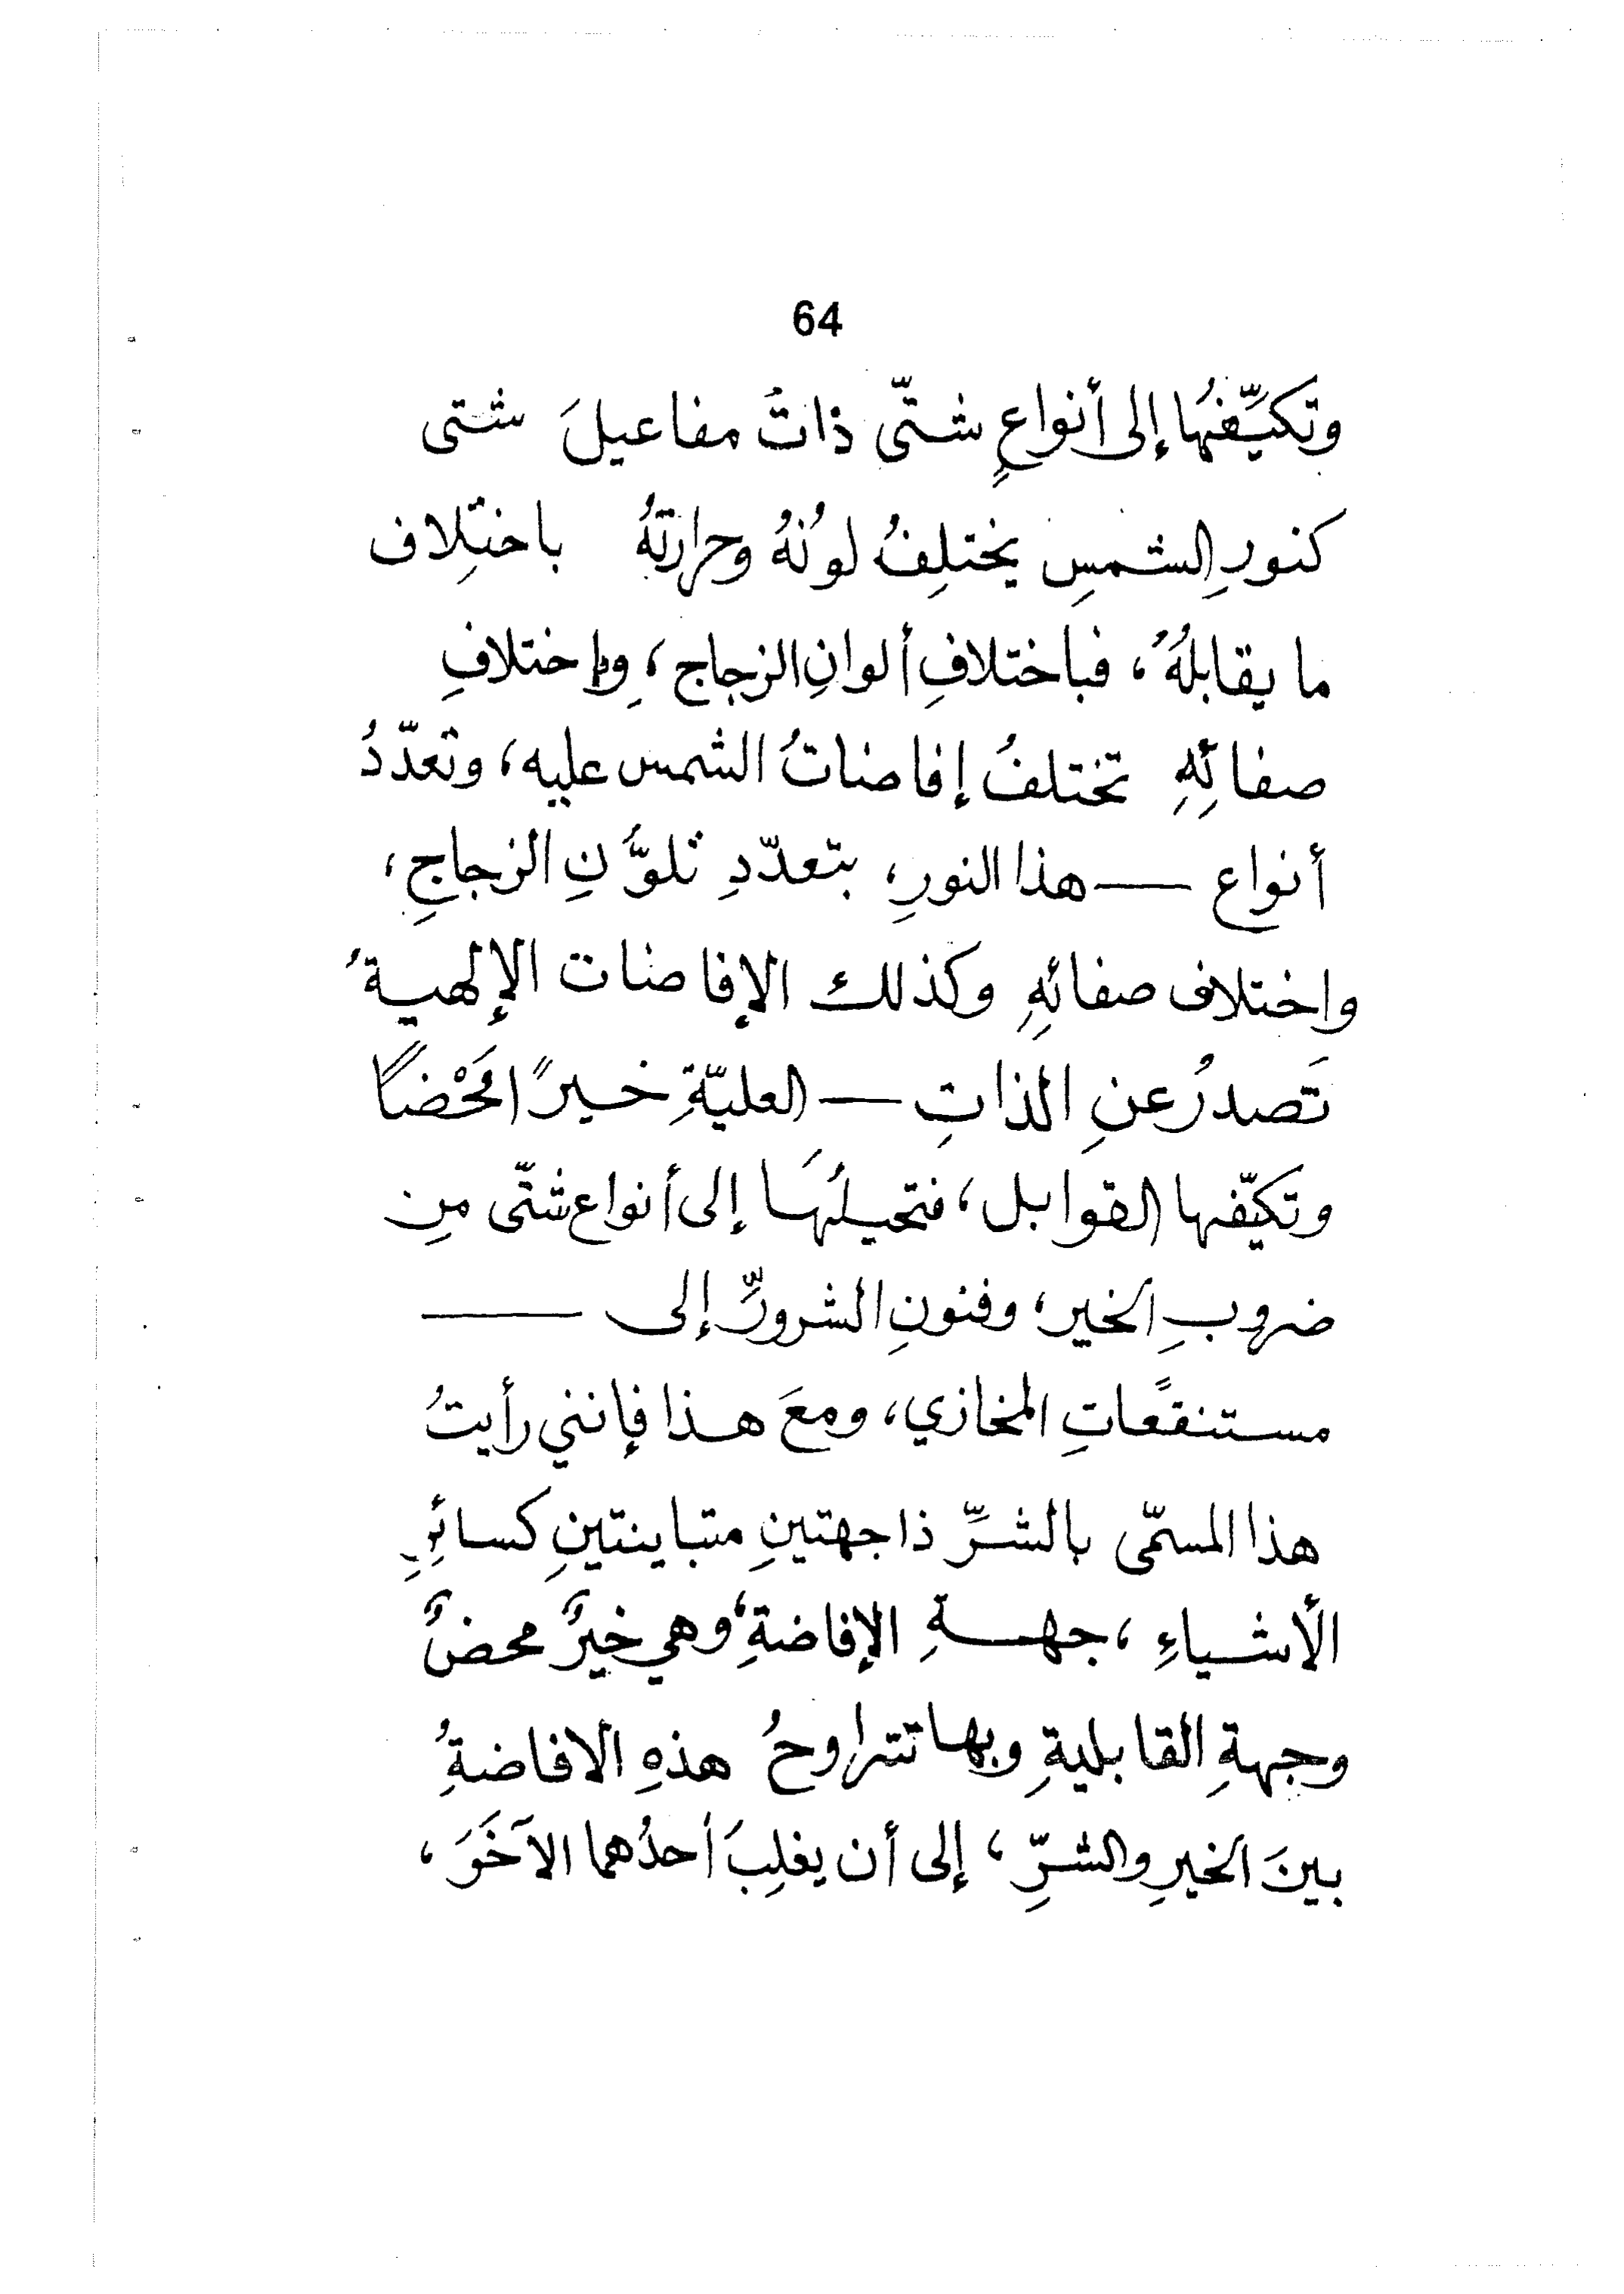 64
وتكيّفُها إلى أنواعٍ شتّى ذاتُ مفاعيلَ شتى
كنورِ الشمسِ يختلِفُ لونُهُ وحرارتهُ باختِلاف
ما يقابلهُ، فباختلافِ ألوانِ الزجاجِ، وإختلافِ
صفائِهِ تختلفُ إفاضاتُ الشمس عليه، وتعدّدُ
أنواع — هذا النورِ، بتعدّدِ تلوُّنِ الزجاجِ،
واختلاف صفائهِ وكذلك الإفاضات الإلهيةُ
تَصدرُ عنِ الذاتِ — العليّةِ خيراً مَحْضاً
وتكيّفها القوابل، فتحيلُهَا إلى أنواع شتّى مِن
ضروبِ الخير، وفنونِ الشرورِّ إلى —
مستنقعاتِ المخازي، ومعَ هذا فإنني رأيتُ
هذا المسمّى بالشرِّ ذا جهتينِ متباينتينِ كسائرِ
الأشياءِ، جهةِ الإفاضةِ، وهي خيرٌ محضٌ
وجهةِ القابليةِ وبها تتراوحُ هذهِ الافاضةُ
بينَ الخيرِ والشرِّ، إلى أن يغلِبَ أحدُهما الآخَرَ،